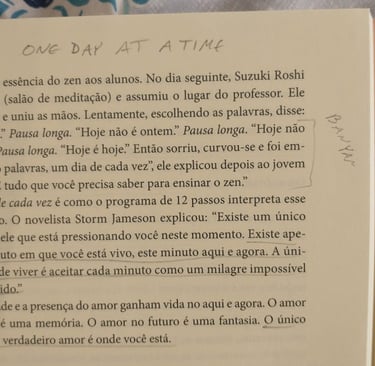 ONE DAY AT A TIME
essência do zen aos alunos. No dia seguinte, Suzuki Roshi
(salão de meditação) e assumiu o lugar do professor. Ele
e uniu as mãos. Lentamente, escolhendo as palavras, disse:
.” Pausa longa. “Hoje não é ontem.” Pausa longa. “Hoje não
Pausa longa. “Hoje é hoje.” Então sorriu, curvou-se e foi em-
palavras, um dia de cada vez”, ele explicou depois ao jovem
tudo que você precisa saber para ensinar o zen.”
de cada vez é como o programa de 12 passos interpreta esse
o. O novelista Storm Jameson explicou: “Existe um único
ele que está pressionando você neste momento. Existe ape-
uto em que você está vivo, este minuto aqui e agora. A úni-
de viver é aceitar cada minuto como um milagre impossível
ido.”
de e a presença do amor ganham vida no aqui e agora. O amor
é uma memória. O amor no futuro é uma fantasia. O único
verdadeiro amor é onde você está.